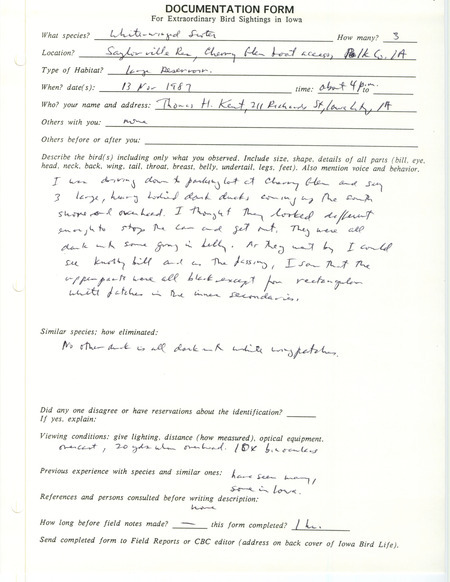 DOCUMENTATION FORM
For Extraordinary Bird Sightings in Iowa
What species? White-winged Scoter How many? 3
Location? Saylorville Res, Cherry Glen boat access, Polk Co., IA
Type of Habitat? large Reservoir.
When? date(s): 13 Nov 1987 time: about 4 p.m. to
Who? your name and address: Thomas H. Kent, 211 Richards St, Iowa City, IA
Others with you: none
Others before or after you:
Describe the bird(s) including only what you observed. Include size, shape, details of all parts (bill, eye,
head, neck, back, wing, tail, throat, breast, belly, undertail, legs, feet). Also mention voice and behavior.
I was driving down to parking lot at Cherry Glen and saw
3 large, heavy bodied dark ducks coming up the south
shore and overhead. I thought they looked different
enough to stop the car and get out. They were all
dark with some gray in belly. As they went by I could
see knobby bill and in the passing, I saw that the
upperparts were all black except for rectangular
white patches in the inner secondaries.
Similar species; how eliminated:
No other duck is all dark with white wing patches.
Did any one disagree or have reservations about the identification?
If yes, explain:
Viewing conditions: give lighting, distance (how measured), optical equipment.
overcast, 20 yds when overhead. 10x binoculars
Previous experience with species and similar ones: have seen many,
some in Iowa.
References and persons consulted before writing description:
none
How long before field notes made? — this form completed? 1 hr.
Send completed form to Field Reports or CBC editor (address on back cover of Iowa Bird Life).